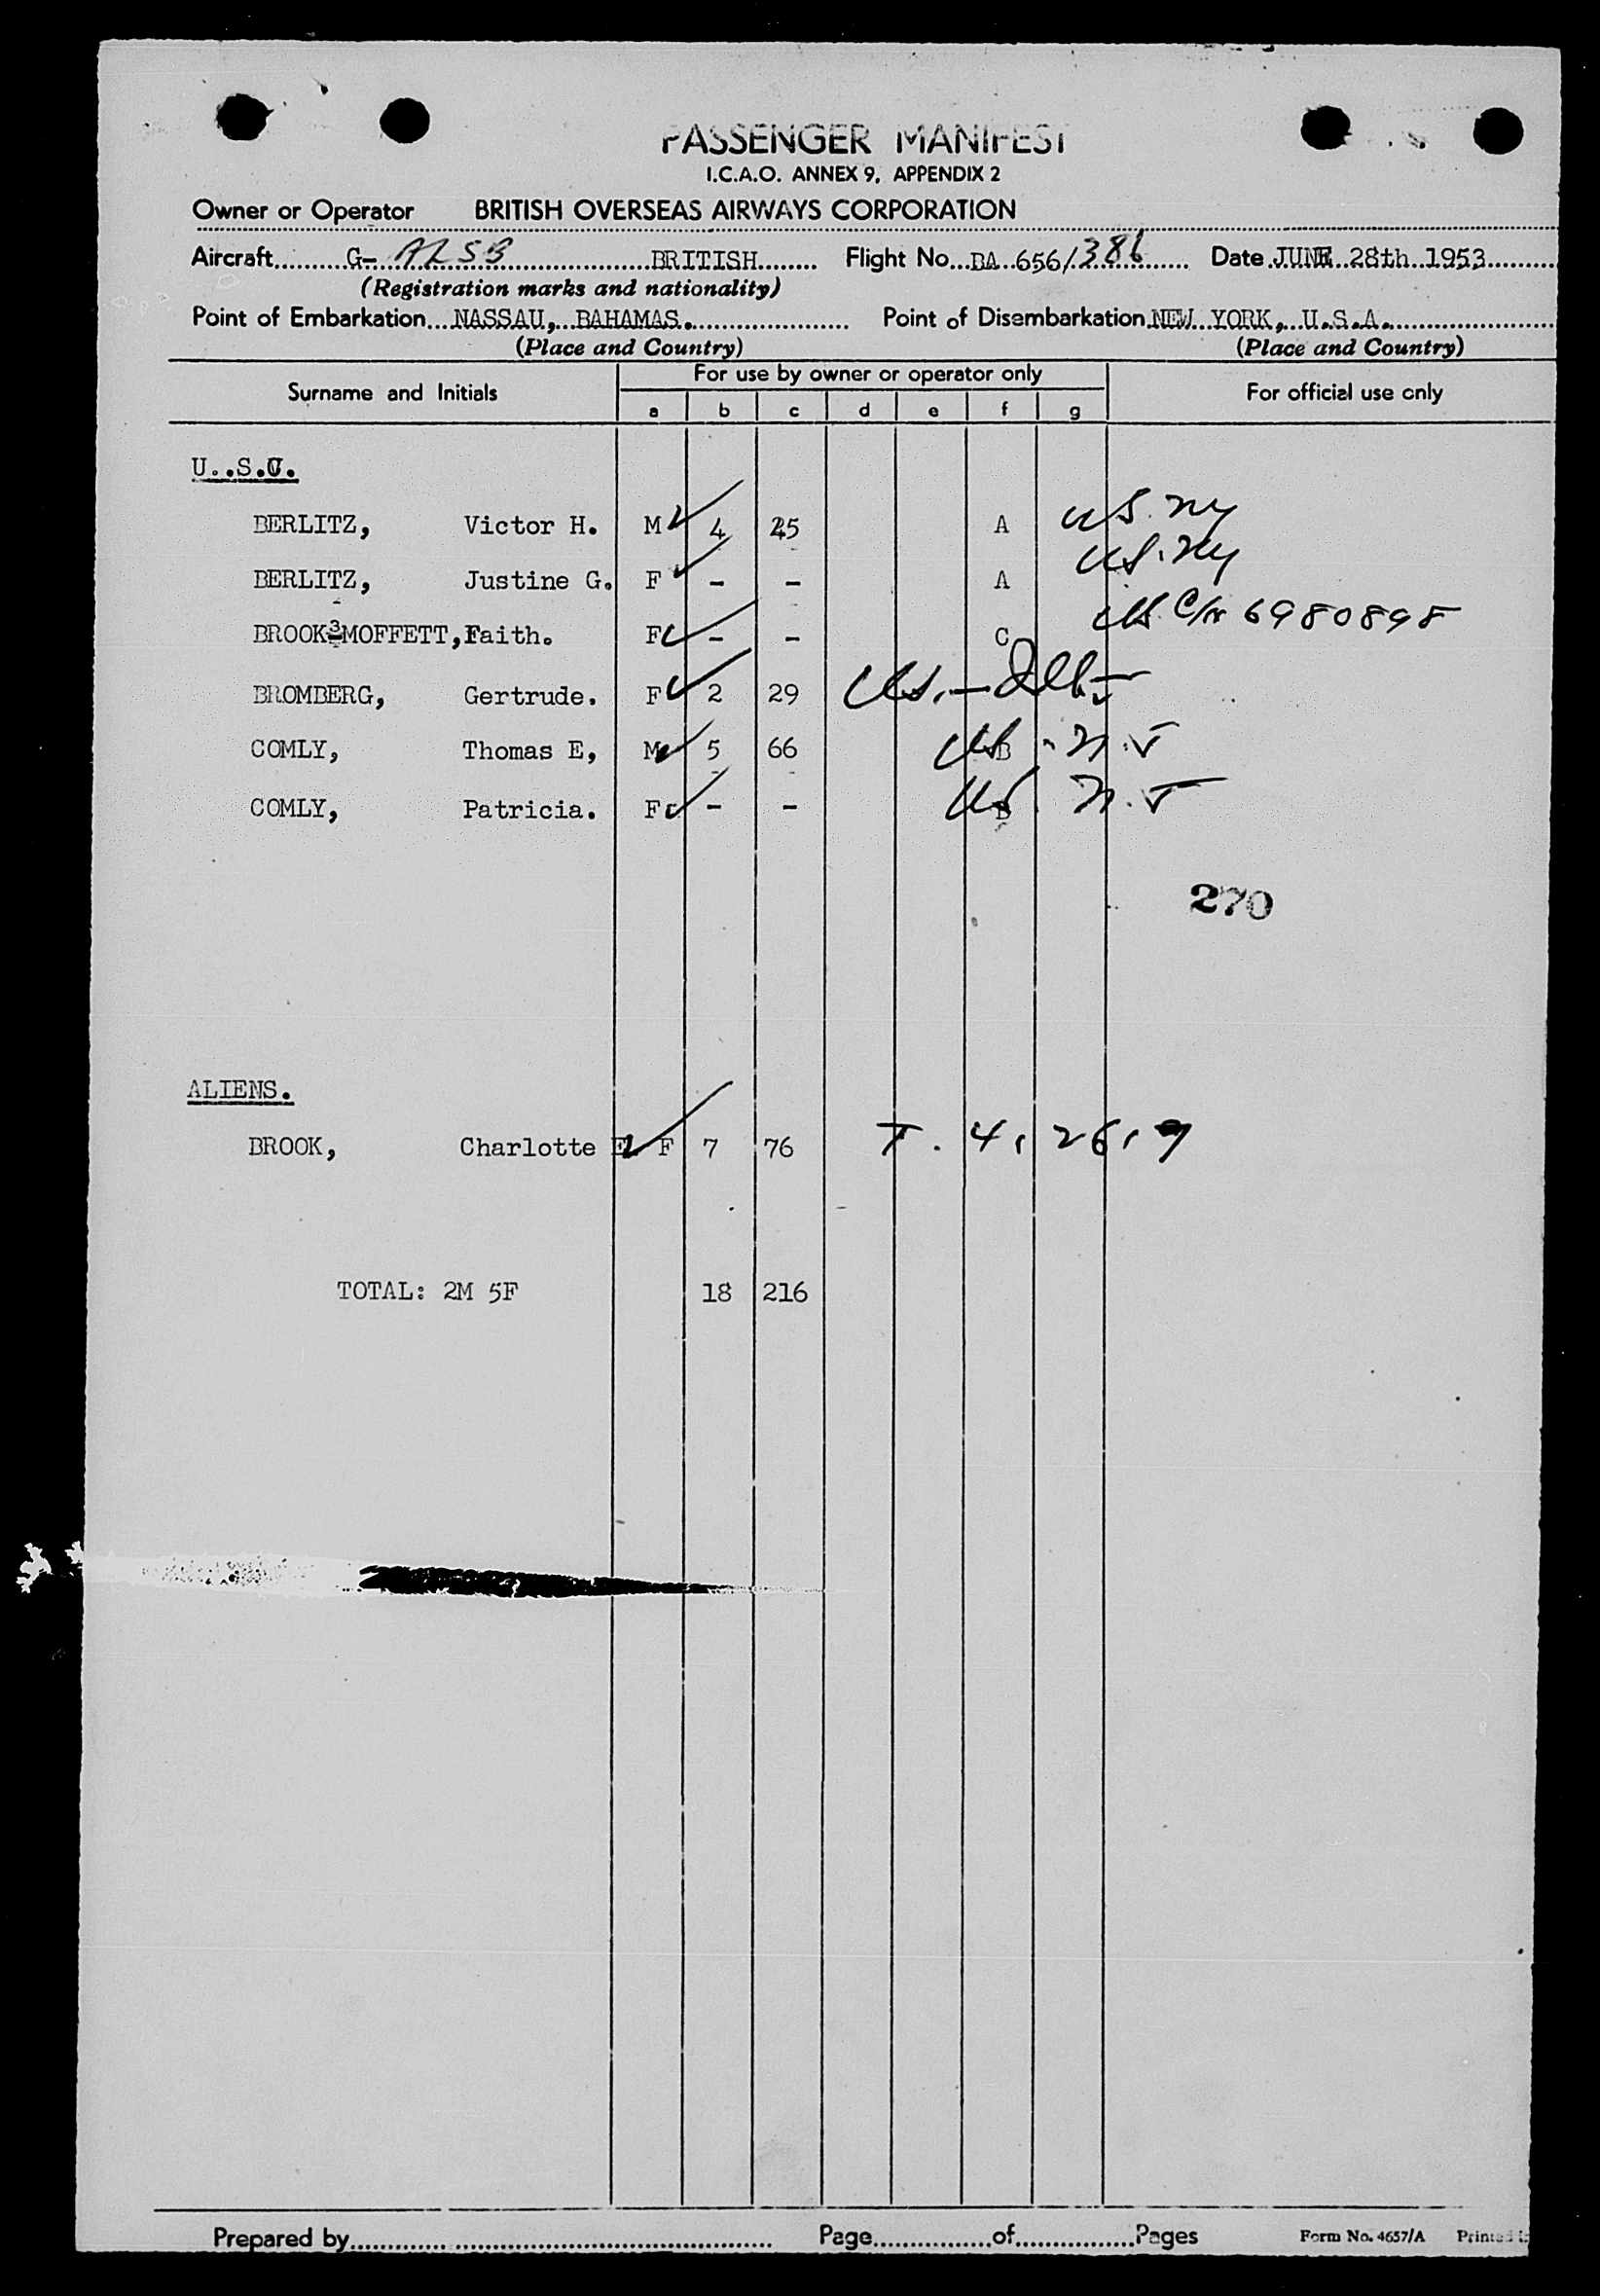 PASSENGER MANIFEST
I.C.A.O. ANNEX 9, APPENDIX 2
Owner or Operator BRITISH OVERSEAS AIRWAYS CORPORATION
Aircraft G- ALSB BRITISH Flight No. BA 656/386 Date JUNE 28th 1953
(Registration marks and nationality)
Point of Embarkation NASSAU, BAHAMAS. Point of Disembarkation NEW YORK, U.S.A.
(Place and Country) (Place and Country)
For use by owner or operator only
Surname and Initials For official use only
a b c d e f g
U.S.C.
BERLITZ, Victor H. M 4 45 A US. NY
BERLITZ, Justine G. F - - A US. NY
BROOK-MOFFETT, Faith. F - - C US C/N 6980898
BROMBERG, Gertrude. F 2 29 US.
COMLY, Thomas E, M 5 66 B US - N.J
COMLY, Patricia. F - - B US. N.J
270
ALIENS.
BROOK, Charlotte E F 7 76 T. 4, 26, 9
TOTAL: 2M 5F 18 216
Prepared by Page of Pages Form No. 4657/A Printed